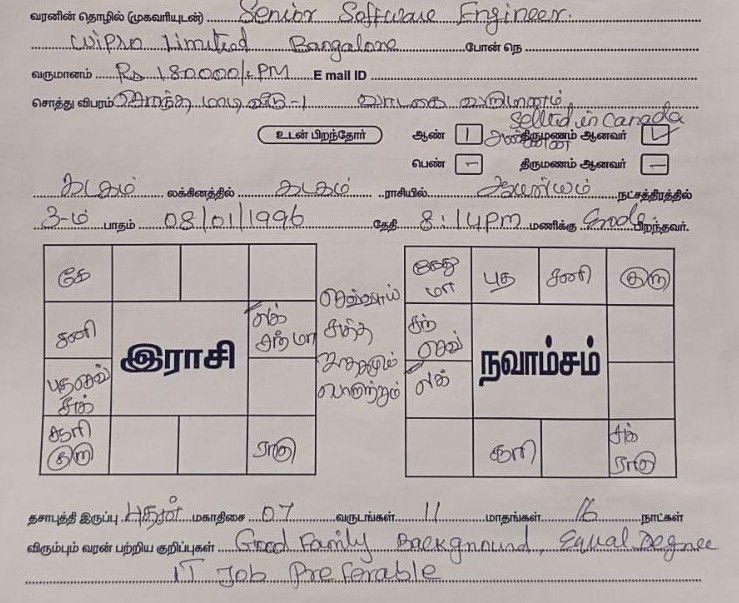 வரனின் தொழில் (முகவரியுடன்) Senior Software Engineer.
Wipro Limited Bangalore போன் நெ
வருமானம் Rs 180000/- PM E mail ID
சொத்து விபரம் சொந்த மாடி வீடு-1 வாடகை வருமானம்
Settled in Canada
உடன் பிறந்தோர் ஆண் 1 அண்ணன் திருமணம் ஆனவர்
பெண் - திருமணம் ஆனவர் -
கடகம் லக்கினத்தில் கடகம் ராசியில் ஆயில்யம் நட்சத்திரத்தில்
3-ம் பாதம் 08/01/1996 தேதி 8:14PM மணிக்கு Erode பிறந்தவர்.
கே
சனி
லக்
சந் மா
புத செவ்
சுக்
சூரி
குரு
ராகு
இராசி
செவ்வாய்
சுத்த
ஜாதகம்
கேது
மா
புத
சனி
குரு
சந்
செவ்
லக்
சூரி
சுக்
ராகு
நவாம்சம்
தசாபுத்தி இருப்பு புதன் மகாதிசை 07 வருடங்கள் 11 மாதங்கள் 16 நாட்கள்
விரும்பும் வரன் பற்றிய குறிப்புகள் Good Family Background, Equal Degree
IT Job Preferable